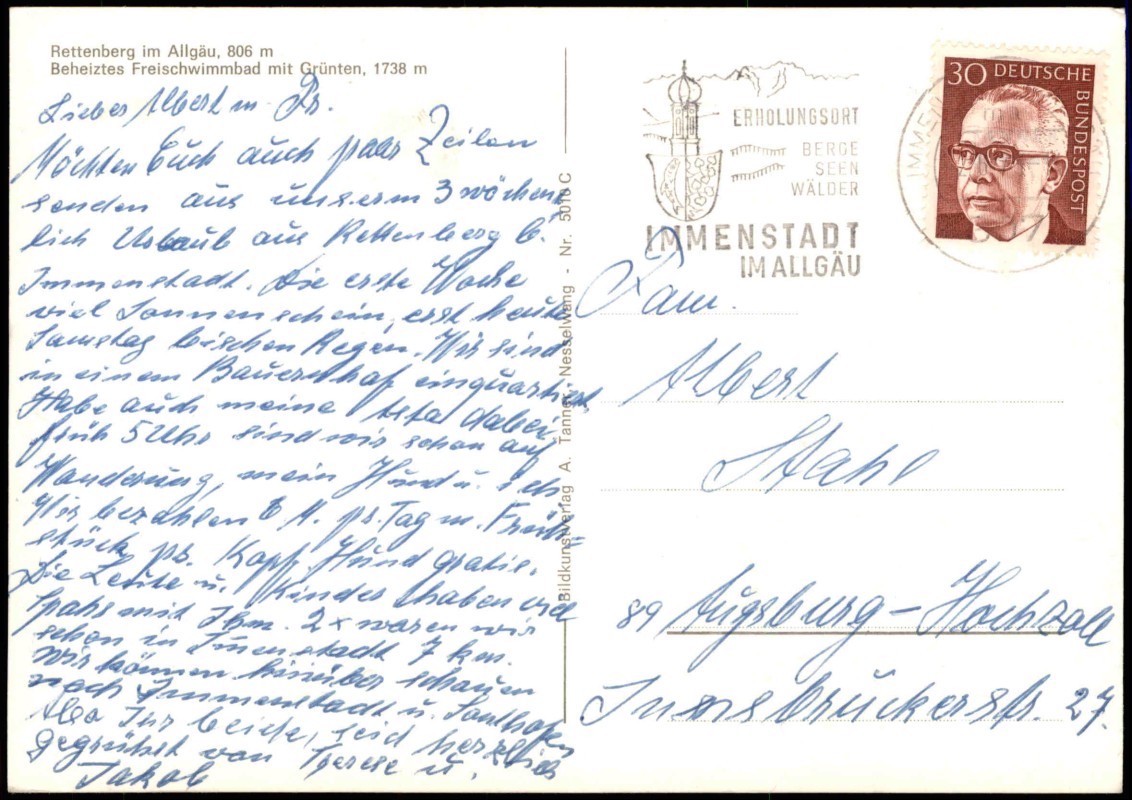 Rettenberg im Allgäu, 806 m
Beheiztes Freischwimmbad mit Grünten, 1738 m
Lieber Albert u. Fr.
Möchten Euch auch paar Zeilen
senden aus unserm 3 wöchent
lich Urlaub aus Rettenberg b.
Immenstadt. Die erste Woche
viel Sonnenschein, erst heute
Samstag bischen Regen. Wir sind
in einem Bauernhof einquartiert.
Habe auch meine dabei
früh 5 Uhr sind wir schon auf
Wanderung, mein Hund u. ich
Wir bezahlen 8 M. pr. Tag m. Früh=
stück pr. Kopf Hund gratis.
Die Leute u. Kinder haben viel
Spahs mit Ihm. 2x waren wir
schon in Imenstadt 7 km.
wir können hinüber schauen
nach Immenstadt u. Sonthofen
Also Ihr beide, seid herzlich
gegrühst von Therese u.
Jakob
Bildkunstverlag A. Tanner, Nesselwang - Nr. 5018 C
ERHOLUNGSORT
BERGE
SEEN
WÄLDER
IMMENSTADT
IM ALLGÄU
30 DEUTSCHE
BUNDESPOST
Fam.
Albert
Stahl
89 Augsburg-Hochzoll
Innsbruckerstr. 27.